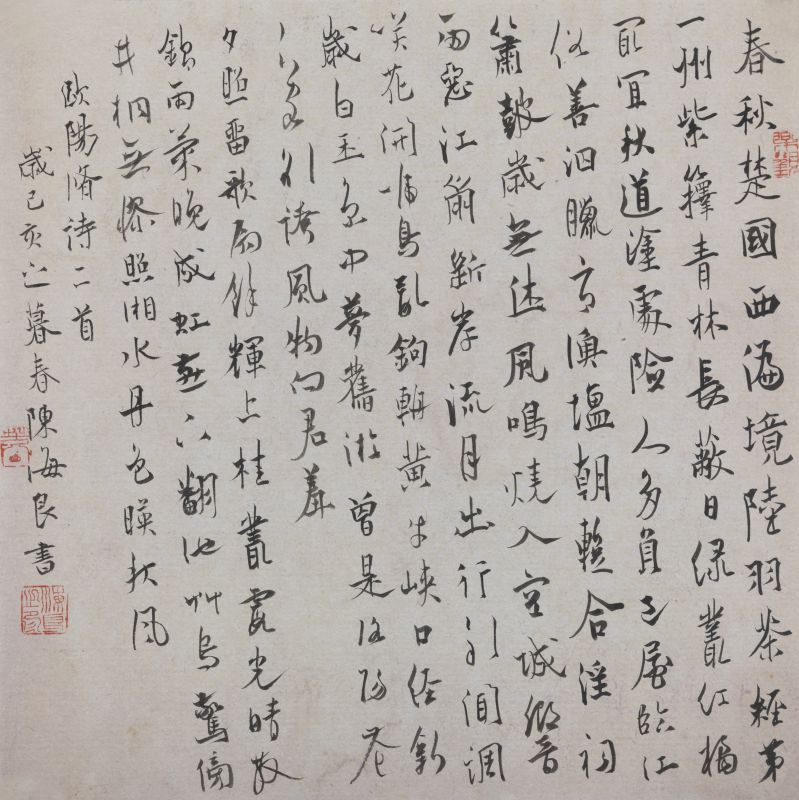 春秋楚國西偏境陸羽茶經第
一州紫籜青林長蔽日緑叢红橘
冣宜秋道塗處險人多負邑屋臨江
俗善泅臘市漁塩朝暫合淫祠
簫皷歲無休風鳴燒入空城響
雨惡江崩斷岸流月出行歌聞調
咲花開啼鳥亂鉤輈黃牛峽口經新
歲白玉京中夢舊游曾是洛陽花
下客欲誇風物向君羞
夕照留歌扇餘輝上桂叢霞光晴散
錦雨氣晚成虹燕下翻池艸烏驚傍
井桐無憀照湘水丹色暎秋風
歐陽脩詩二首
歲己亥之暮春陳海良書